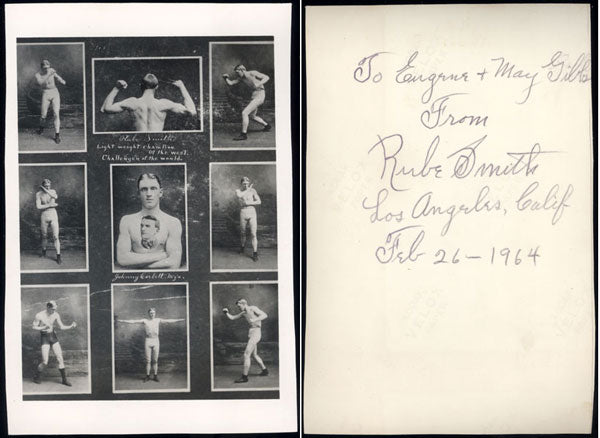 Rube Smith
Light weight champion
of the west.
Challenger of the world.
Johnny Corbett. Mg'r.
To Eugene + May Gibbs
From
Rube Smith
Los Angeles, Calif
Feb 26-1964
VELOX
VELOX